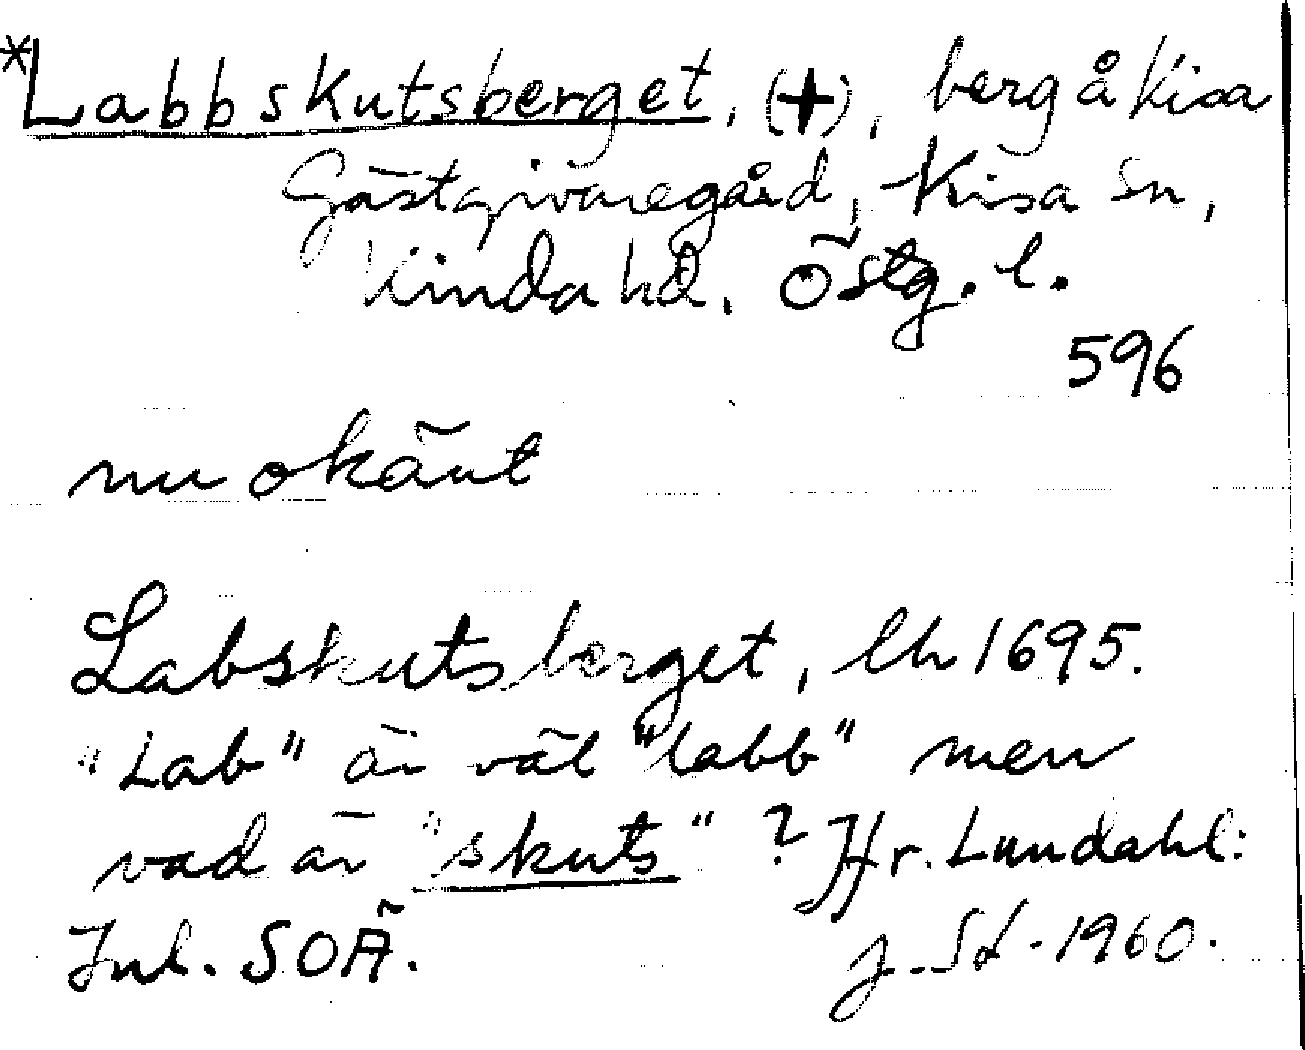 *Labbskutsberget, (+), berg å Kisa
Gästgivaregård, Kisa sn,
Kinda hd. Östg. l.
596
nu okänt
Labskutsberget, lh 1695.
"Lab" är väl "labb" men
vad är "skuts"? Jfr. Lundahl:
Inl. SOÄ.
J. Sd. 1960.